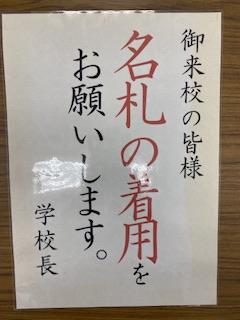 御来校の皆様
名札の着用を
お願いします。
学校長